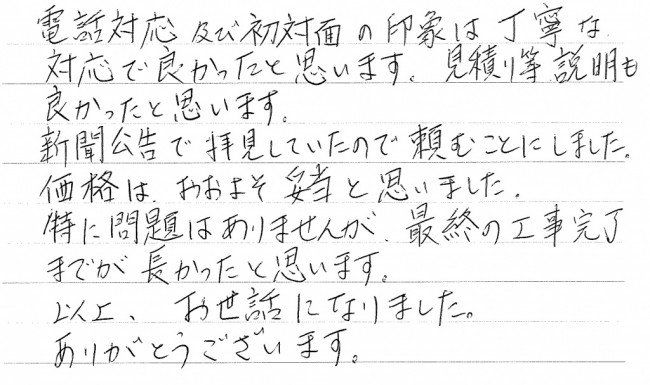 電話対応及び初対面の印象は丁寧な
対応で良かったと思います。見積り等説明も
良かったと思います。
新聞公告で拝見していたので頼むことにしました。
価格は、おおよそ妥当と思いました。
特に問題はありませんが、最終の工事完了
までが長かったと思います。
以上、お世話になりました。
ありがとうございます。